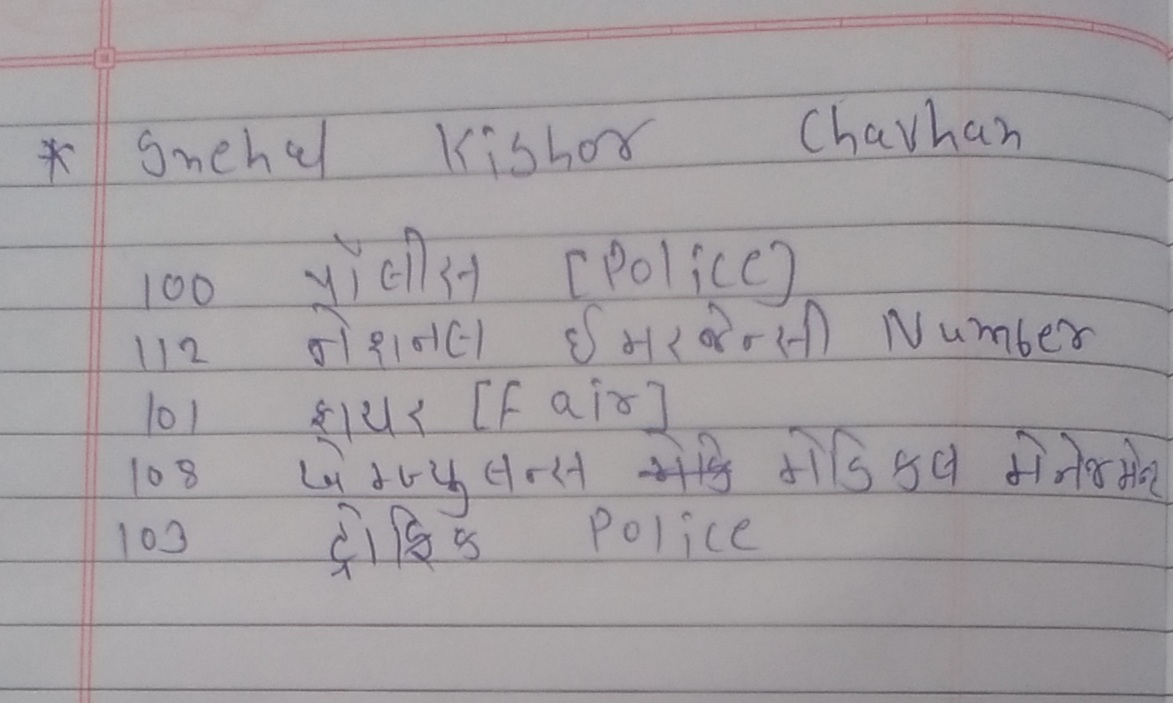 * Snehal Kishor Chavhan
100 પોલીસ [Police]
112 નોશનલ ઈમરજેન્સી Number
101 ફાયર [Fair]
108 એમ્બ્યુલન્સ મેડિકલ મેનેજમેન્ટ
103 ટ્રાફિક Police